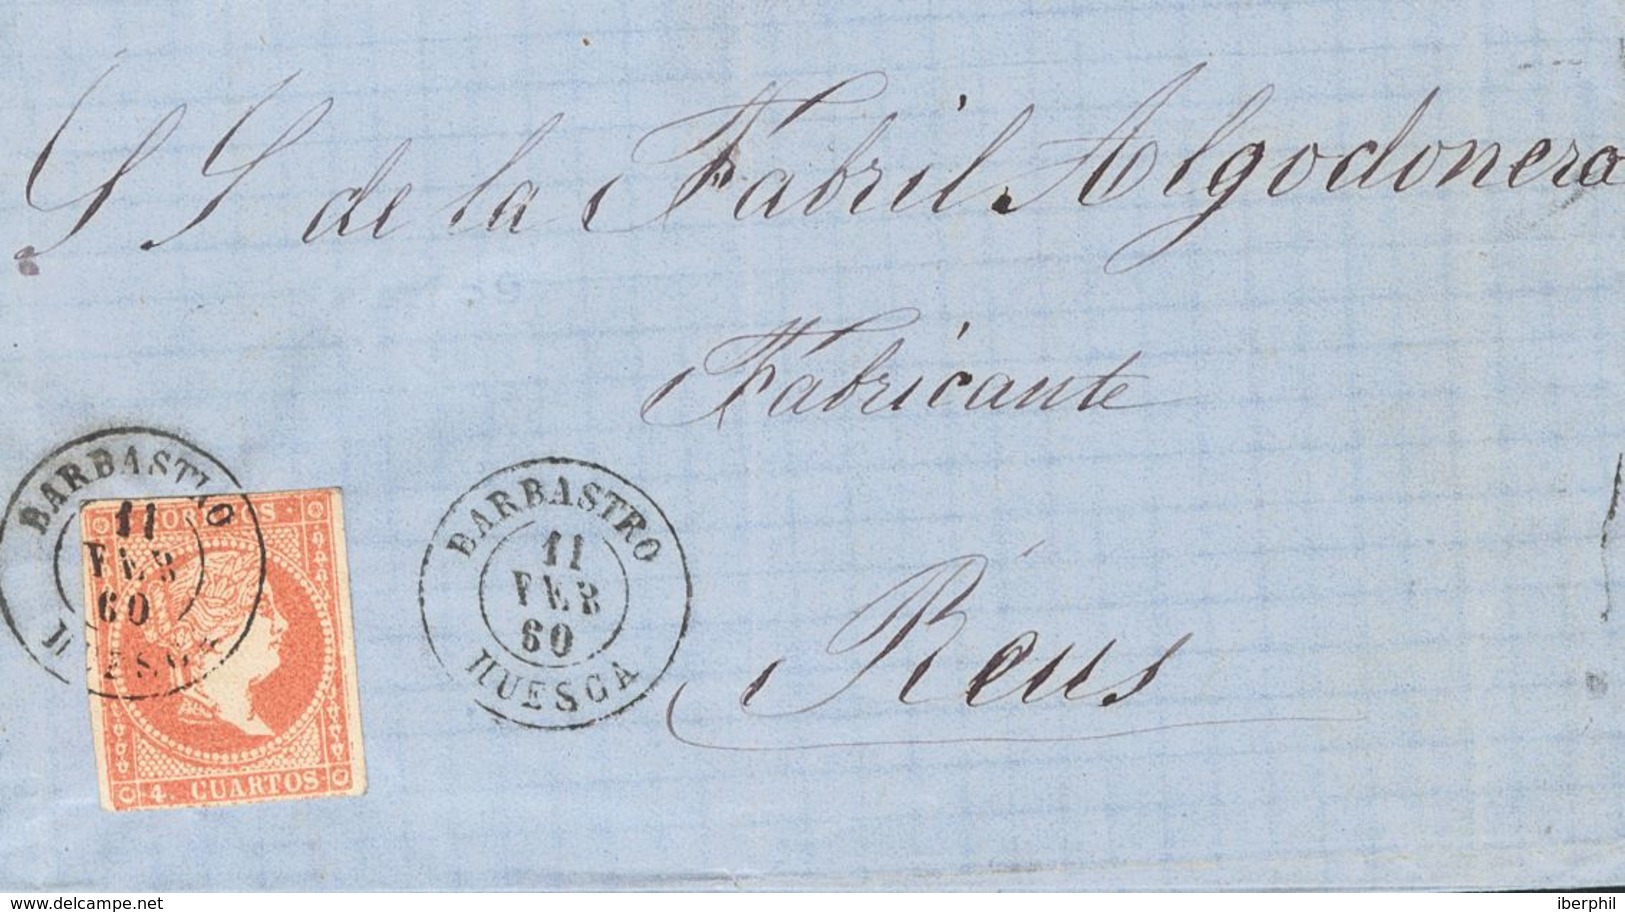 S S de la Fabril Algodonera
Fabricante
Reus
BARBASTRO
11
FEB
60
HUESCA
BARBASTRO
11
FEB
60
HUESCA
CORREOS
4. CUARTOS
delcampe.net
iberphil